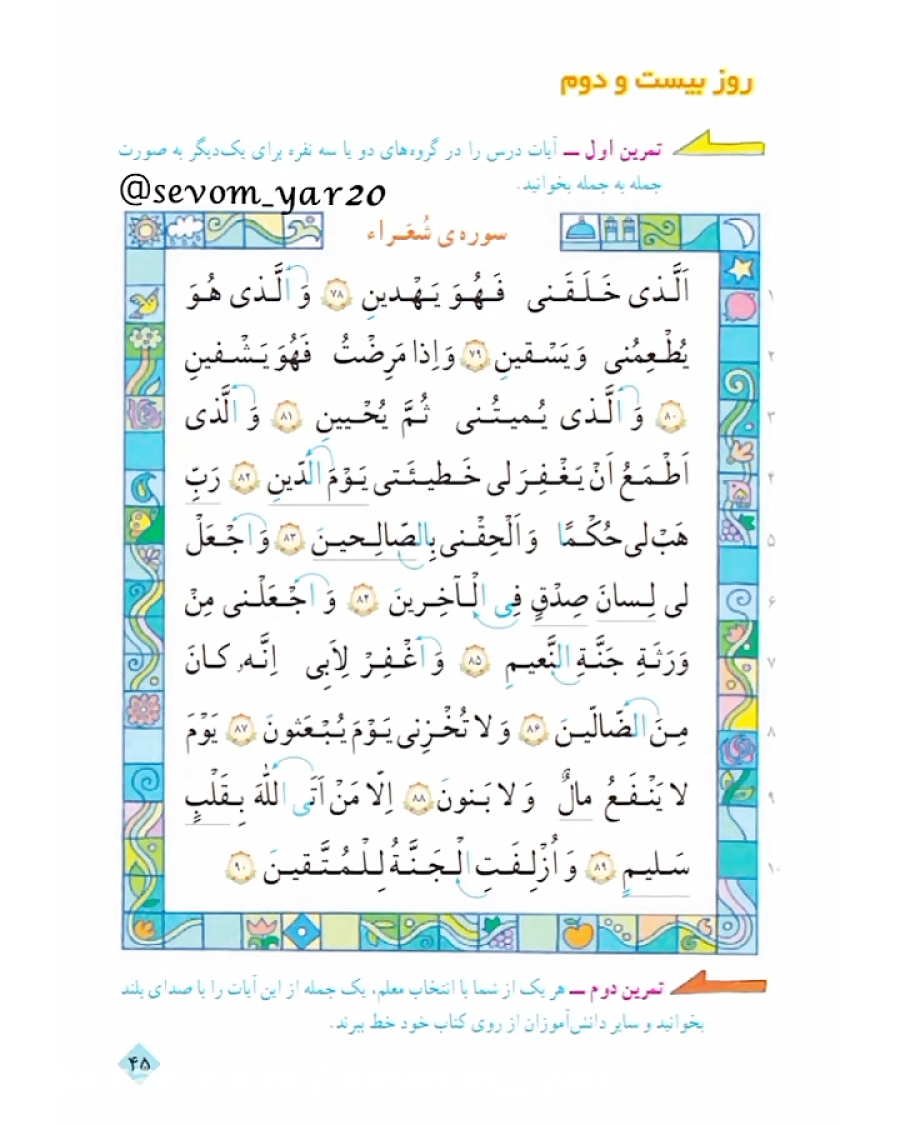 روز بیست و دوم
تمرین اول ــ آیات درس را در گروه‌های دو یا سه نفره برای یک‌دیگر به صورت
جمله به جمله بخوانید.
@sevom_yar20
سوره‌ی شُعَراء
اَلَّذی خَلَقَنی فَهُوَ یَهْدینِ ﴿۷۸﴾ وَ الَّذی هُوَ
۱
یُطْعِمُنی وَ یَسْقینِ ﴿۷۹﴾ وَ اِذا مَرِضْتُ فَهُوَ یَشْفینِ
۲
﴿۸۰﴾ وَ الَّذی یُمیتُنی ثُمَّ یُحْیینِ ﴿۸۱﴾ وَ الَّذی
۳
اَطْمَعُ اَنْ یَغْفِرَ لی خَطیئَتی یَوْمَ الدّینِ ﴿۸۲﴾ رَبِّ
۴
هَبْ لی حُکْمًا وَ اَلْحِقْنی بِالصّالِحینَ ﴿۸۳﴾ وَ اجْعَلْ
۵
لی لِسانَ صِدْقٍ فِی الْآخِرینَ ﴿۸۴﴾ وَ اجْعَلْنی مِنْ
۶
وَرَثَةِ جَنَّةِ النَّعیمِ ﴿۸۵﴾ وَ اغْفِرْ لِاَبی اِنَّهُ کانَ
۷
مِنَ الضّالّینَ ﴿۸۶﴾ وَ لا تُخْزِنی یَوْمَ یُبْعَثونَ ﴿۸۷﴾ یَوْمَ
۸
لا یَنْفَعُ مالٌ وَ لا بَنونَ ﴿۸۸﴾ اِلّا مَنْ اَتَی اللّٰهَ بِقَلْبٍ
۹
سَلیمٍ ﴿۸۹﴾ وَ اُزْلِفَتِ الْجَنَّةُ لِلْمُتَّقینَ ﴿۹۰﴾
۱۰
تمرین دوم ــ هر یک از شما با انتخاب معلم، یک جمله از این آیات را با صدای بلند
بخوانید و سایر دانش‌آموزان از روی کتاب خود خط ببرند.
۴۵